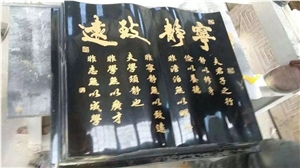 寧靜致遠
夫君子之行
靜以修身
儉以養德
非澹泊無以明志
非寧靜無以致遠
夫學須靜也
非學無以廣才
非志無以成學